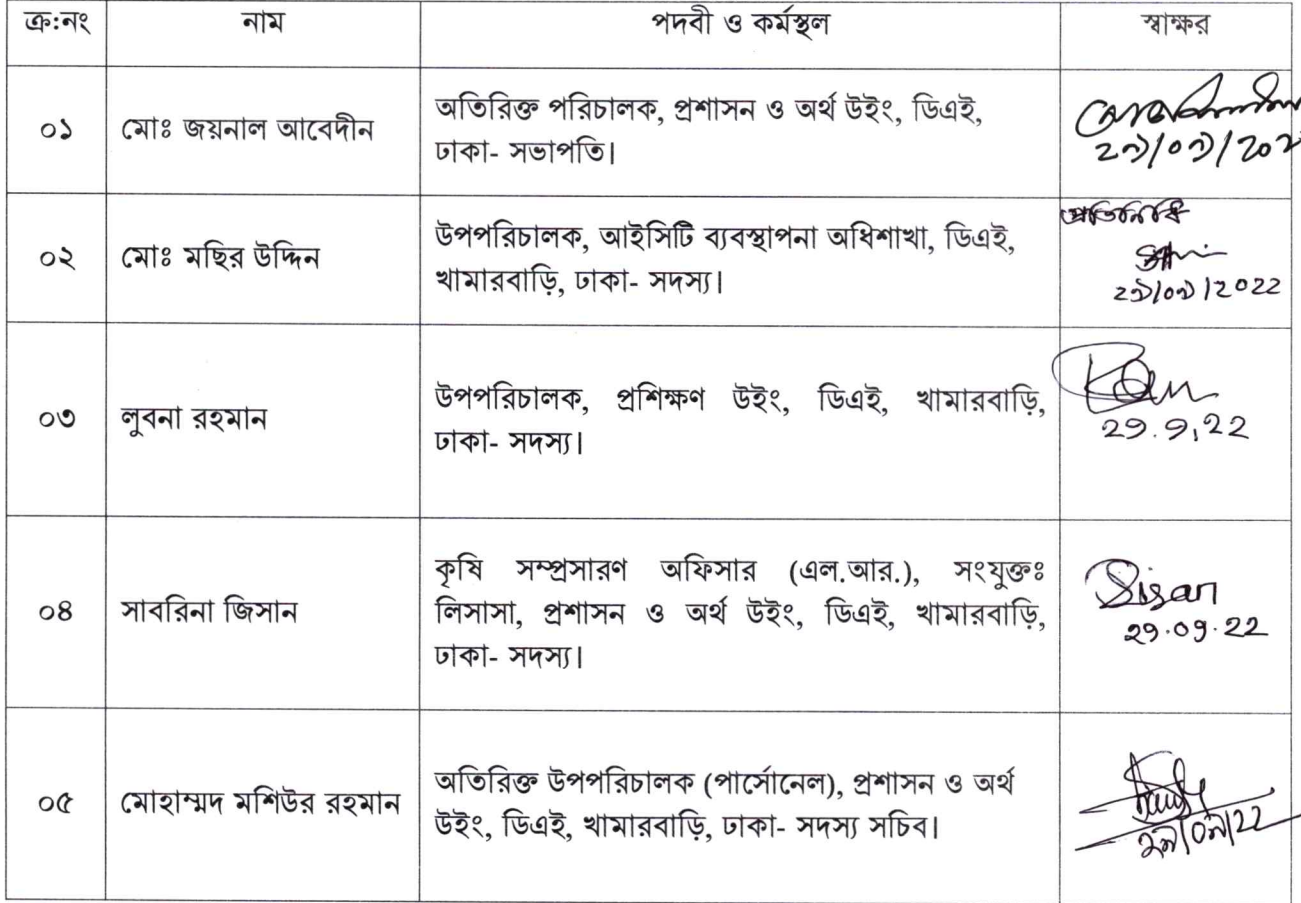 ক্র:নং নাম পদবী ও কর্মস্থল স্বাক্ষর
০১ মোঃ জয়নাল আবেদীন অতিরিক্ত পরিচালক, প্রশাসন ও অর্থ উইং, ডিএই,
ঢাকা- সভাপতি।
০২ মোঃ মছির উদ্দিন উপপরিচালক, আইসিটি ব্যবস্থাপনা অধিশাখা, ডিএই,
খামারবাড়ি, ঢাকা- সদস্য।
প্রতিনিধি
২৯/০৯/2022
০৩ লুবনা রহমান উপপরিচালক, প্রশিক্ষণ উইং, ডিএই, খামারবাড়ি,
ঢাকা- সদস্য।
29.9.22
০৪ সাবরিনা জিসান কৃষি সম্প্রসারণ অফিসার (এল.আর.), সংযুক্তঃ
লিসাসা, প্রশাসন ও অর্থ উইং, ডিএই, খামারবাড়ি,
ঢাকা- সদস্য।
Sisan
29.09.22
০৫ মোহাম্মদ মশিউর রহমান অতিরিক্ত উপপরিচালক (পার্সোনেল), প্রশাসন ও অর্থ
উইং, ডিএই, খামারবাড়ি, ঢাকা- সদস্য সচিব।
২৯/০৯/22